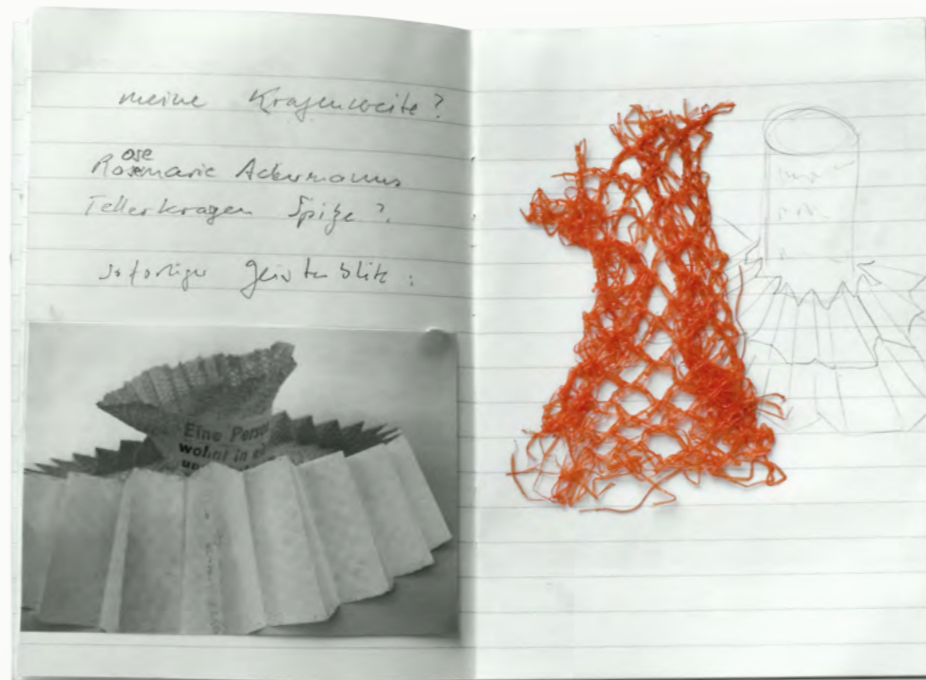 meine Kragenweite?
ose
Rosemarie Ackermanns
Tellerkragen Spitze?
sofortiger Geistesblitz:
Eine Perso
wohnt in ei
un